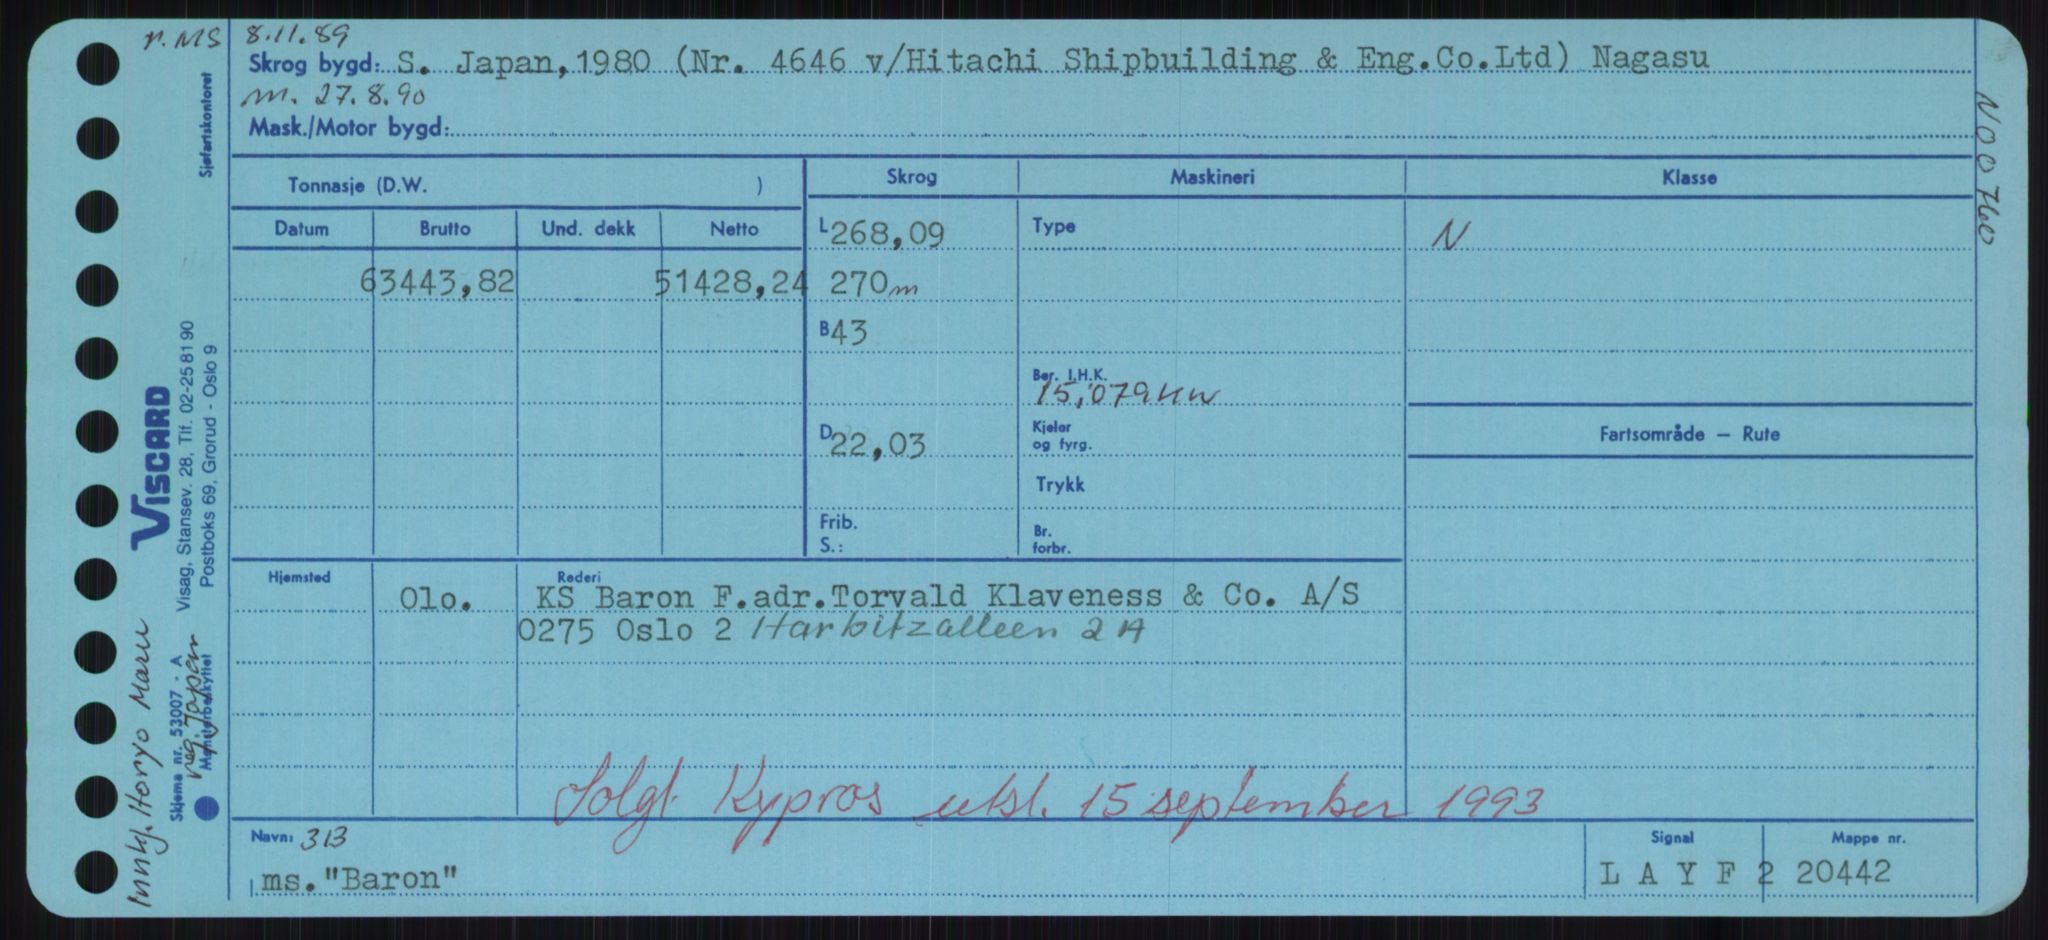 n. MS 8.11.89
Skrog bygd: S. Japan,1980 (Nr. 4646 v/Hitachi Shipbuilding & Eng.Co.Ltd) Nagasu
m. 27.8.90
Mask./Motor bygd:
Tonnasje (D.W. )
Datum Brutto Und. dekk Netto
63443,82 51428,24
Skrog Maskineri Klasse
L 268,09 Type N
270 m
B 43
Ber. I.H.K.
15,079 KW
D 22,03
Kjeler
og fyrg.
Trykk
Frib.
S.:
Br.
forbr.
Fartsområde – Rute
Hjemsted Rederi
Olo. KS Baron F.adr.Torvald Klaveness & Co. A/S
0275 Oslo 2 Harbitzalleen 2 A
Solgt Kypros utsl. 15 september 1993
Navn: 313
ms."Baron"
Signal Mappe nr.
L A Y F 2 20442
Sjøfartskontoret
VISCARD
Visag, Stansev. 28, Tlf. 02-25 81 90
Postboks 69, Grorud - Oslo 9
Skjema nr. 53007 - A
Mønsterbeskyttet
Innkj. Horyo Maru
reg. Japan
N00760